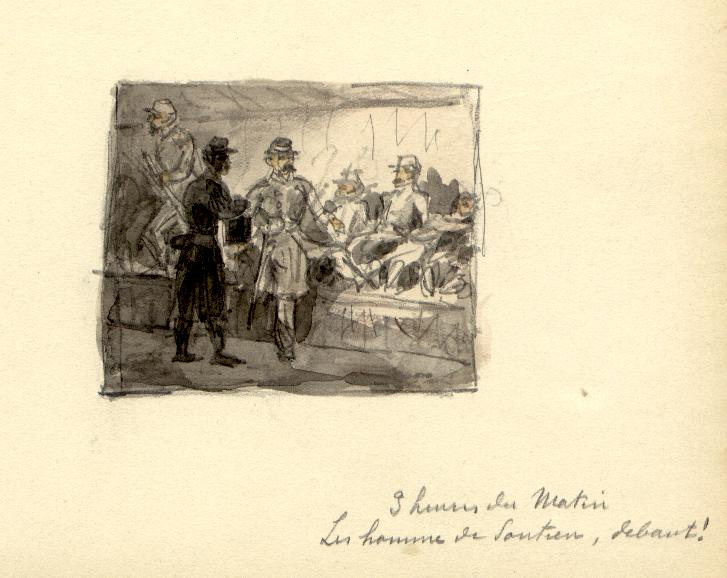 3 heures du Matin
Les homme de Soutien, debout!